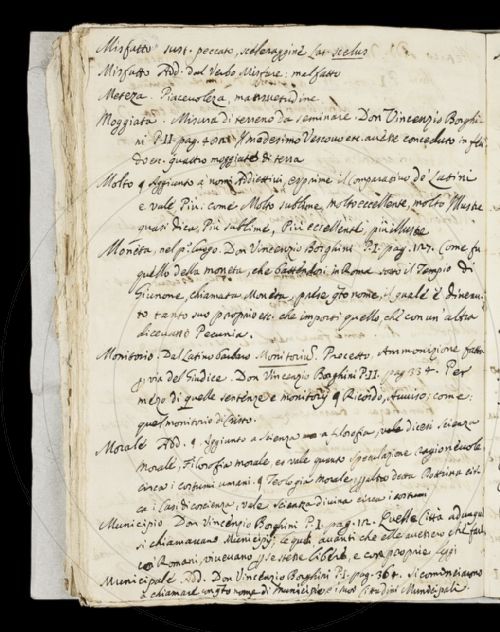 Misfatto sust. peccato, scelleraggine Lat. scelus
Misfatto Add. dal Verbo, Misfare: malfatto
Piacevolezza, mansuetudine
Moggiata. Misura di terreno da seminare. Don Vincenzio Borghi-
ni P. II pag. Il medesimo Vescovo etc. avere conceduto in
etc. quattro moggiate di terra
Molto § Aggiunto a' nomi Addiettivi, esprime il Comparativo de' Latini
e vale Più: come Molto sublime, molto eccellente, molto Illustre
quasi dica, Più sublime, Più eccellente, più illustre
Moneta, nel p.° luogo. Don Vincenzio Borghini P. I. pag. 127. Come fu
quello della moneta, che battendosi in Roma sotto il Tempio di
Giunone, chiamata Monéta, prese q.to nome, il quale è divenu-
to tanto suo proprio etc. che importi quello, che con un' altra
dicevano Pecunia.
Monitorio. Dal Latino barbaro Monitoriu. Precetto. Ammonizione fatta
p via del Giudice. Don Vincenzio Borghini P. II. pag. 334. Per
mezo di quelle sentenze e monitorj § Ricordo, Avviso; come:
quel monitorio di Cristo.
Morale Add. § Aggiunto a Scienza o a Filosofia, dicesi Scienza
morale, Filosofia morale, e vale quanto speculazione ragionevole,
circa i costumi umani. § Teologia Morale, detta Dottrina
ca i Casi di coscienza, vale Scienza divina circa i costumi
Municipio Don Vincenzio Borghini P. I. pag. 12. Quelle Città adunque
si chiamavano Municipj, le quali avanti che elle avessero che fare
co' Romani, vivevano p se stesse libere, e con proprie Leggi
Municipale Add. Don Vincenzio Borghini P. I. pag. 364. Si cominciarono
a chiamare nome di Municipio, e i suoi Cittadini Municipali.